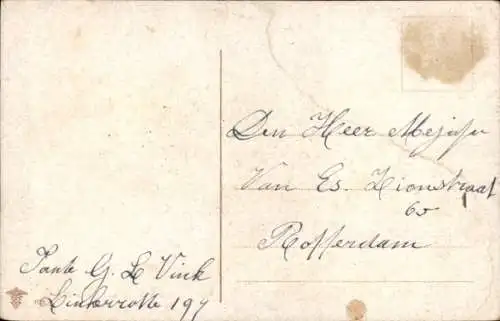 Tante G. L. Vink
Linkerrotte 197
Den Heer Mejufr
Van Es. Zionstraat
60
Rotterdam